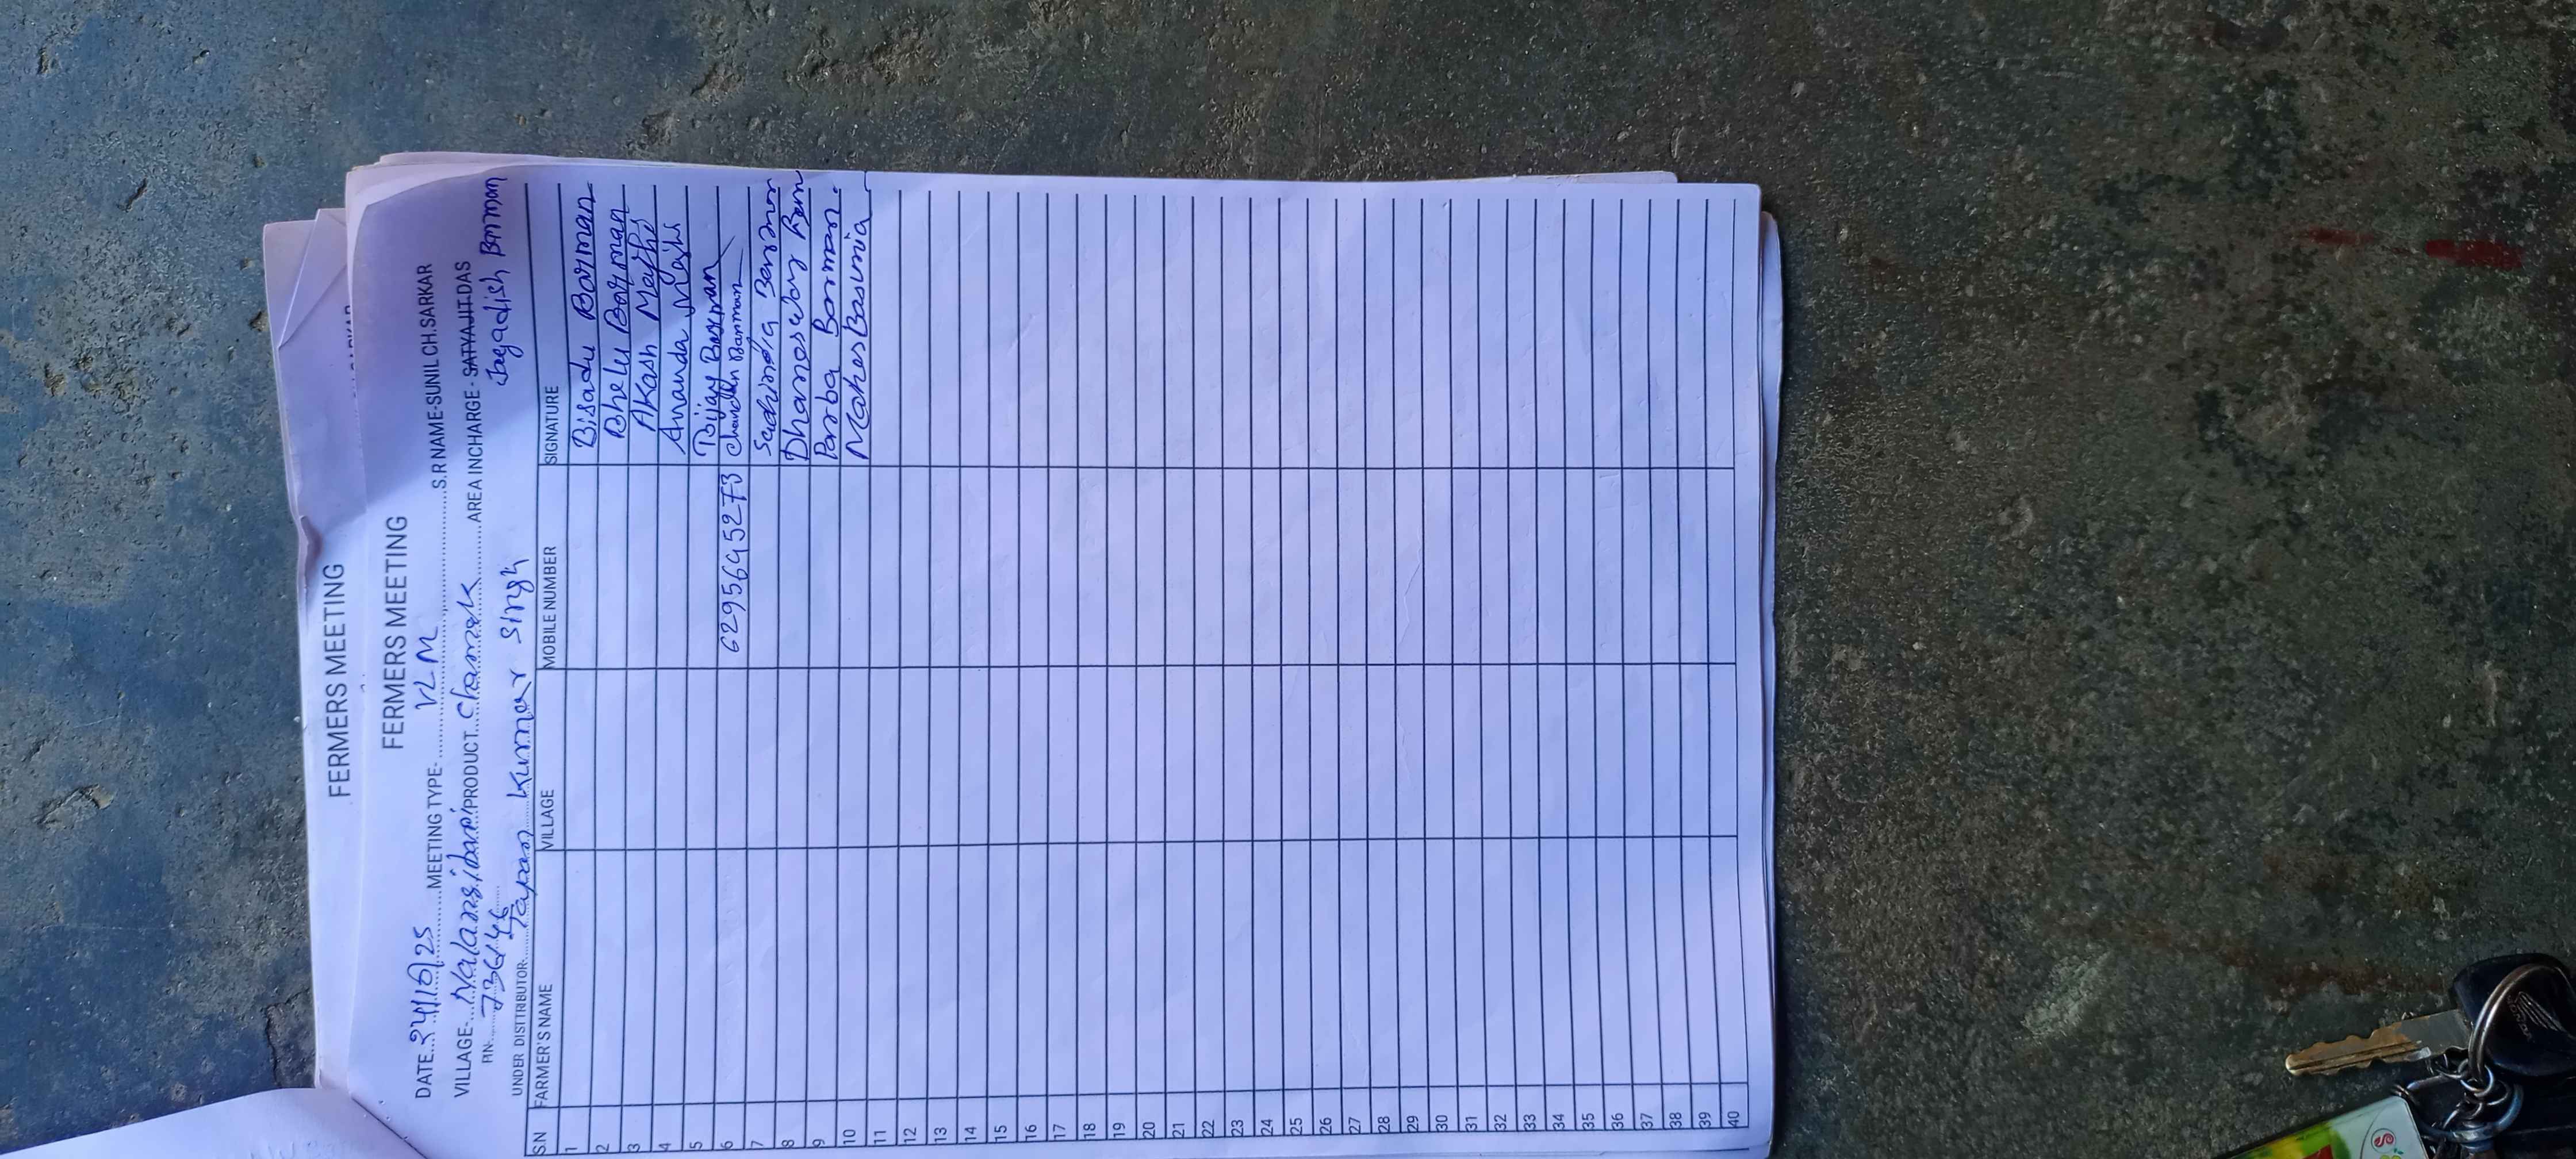 FERMERS MEETING
FERMERS MEETING
DATE..24/6/25......MEETING TYPE-......VLM......S.R NAME-SUNIL CH.SARKAR
VILLAGE-...Nalansibari PRODUCT...Chamak......AREA INCHARGE - SATYAJIT DAS
PIN:... Jagadish Barman
UNDER DISTTRIBUTOR-......Tapan Kumar Singh
S.N FARMER'S NAME VILLAGE MOBILE NUMBER SIGNATURE
1 Bisadu Barman
2 Bhelu Barman
3 AKash
4 Ananda Majhi
5 Bijay Barman
6 6295695273 Chandan Barman
7
8
9 Parba Barman.
10 Mahes Basunia
11
12
13
14
15
16
17
18
19
20
21
22
23
24
25
26
27
28
29
30
31
32
33
34
35
36
37
38
39
40